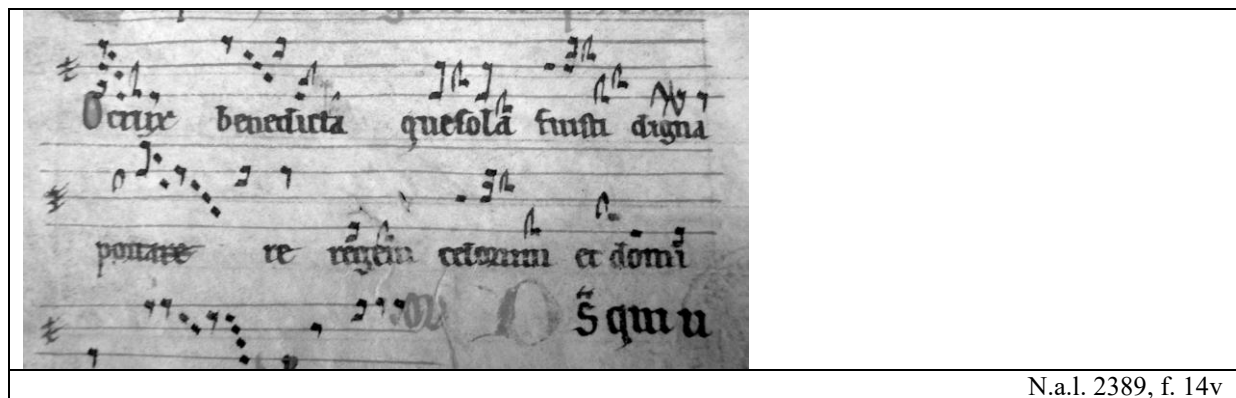 O crux benedicta que sola fuisti digna
portare re regem celorum et domi
S qm u
N.a.l. 2389, f. 14v